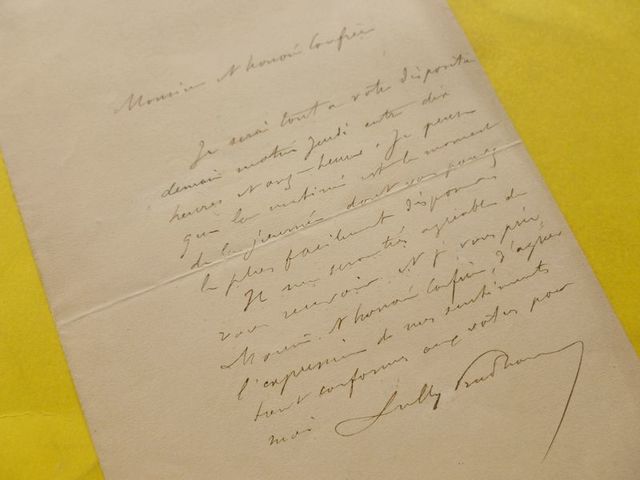 Monsieur et honoré Confrère
Je serai tout à votre disposition
demain matin jeudi entre dix
heures et onze heures. Je pense
que la matinée est le moment
de la journée dont vous pouvez
le plus facilement disposer.
Il me sera très agréable de
vous recevoir et je vous prie,
Monsieur et honoré Confrère, d'agréer
l'expression de mes sentiments
tout conformes aux vôtres pour
moi Sully Prudhomme